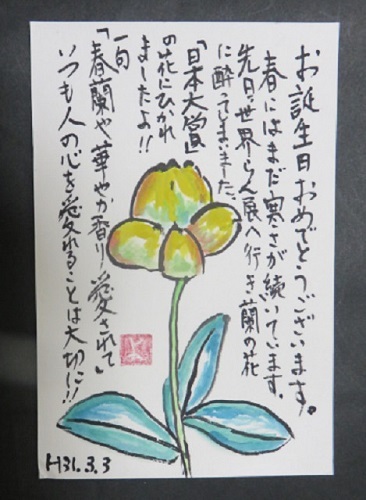 お誕生日おめでとうございます。
春にはまだ寒さが続いています。
先日、世界らん展へ行き蘭の花
に酔ってしまいました。
「日本大賞」
の花にひかれ
ましたよ!!
一句
「春蘭や華やか香り愛されて」
いつも人の心を愛れることは大切に!!
H31.3.3